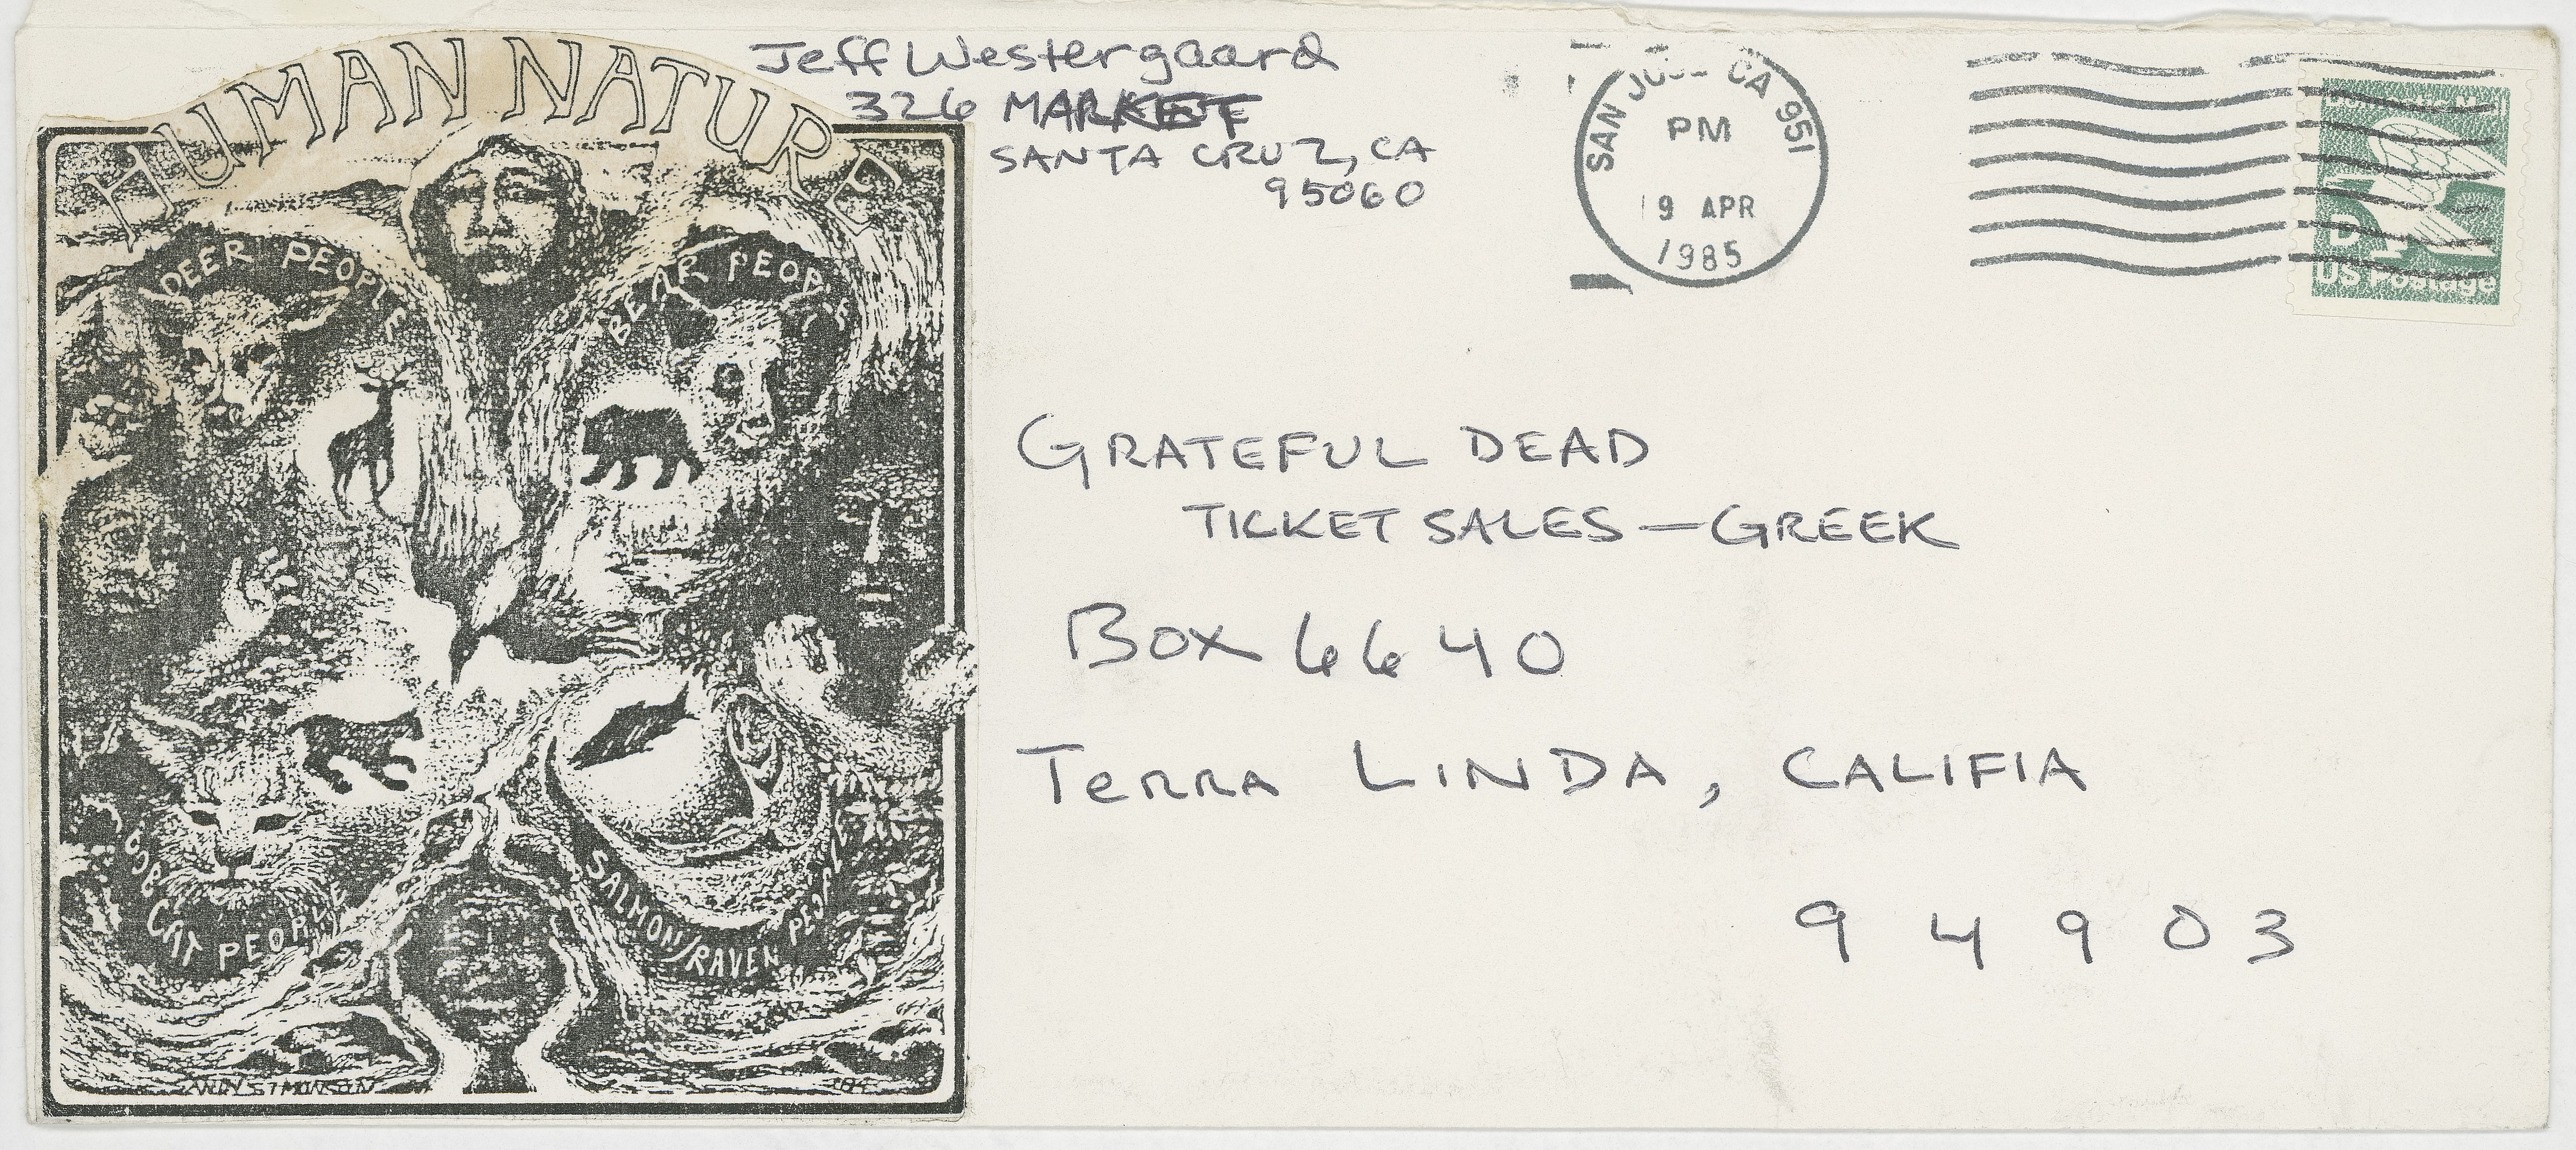 HUMAN NATURE
DEER PEOPLE
BEAR PEOPLE
CAT PEOPLE
SALMON/RAVEN PEOPLE
Jeff Westergaard
326 MARKET
SANTA CRUZ, CA
95060
SAN JOSE CA 951
PM
19 APR
1985
Domestic Mail
D
US Postage
GRATEFUL DEAD
TICKET SALES — GREEK
BOX 6640
TERRA LINDA, CALIFIA
94903